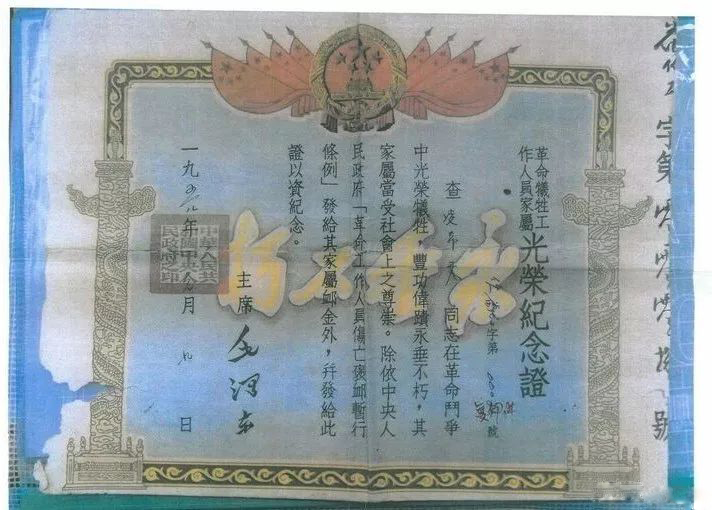 革命犧牲工作人員家屬光榮紀念證
字第 號
查 同志在革命鬥爭
中光榮犧牲,豐功偉蹟永垂不朽,其
家屬當受社會上之尊崇。除依中央人
民政府「革命工作人員傷亡褒卹暫行
條例」發給其家屬卹金外,幷發給此
證以資紀念。
主席 毛澤東
一九五 年 月 九 日
中華人民共和國中央人民政府之印
永垂不朽
字第 號